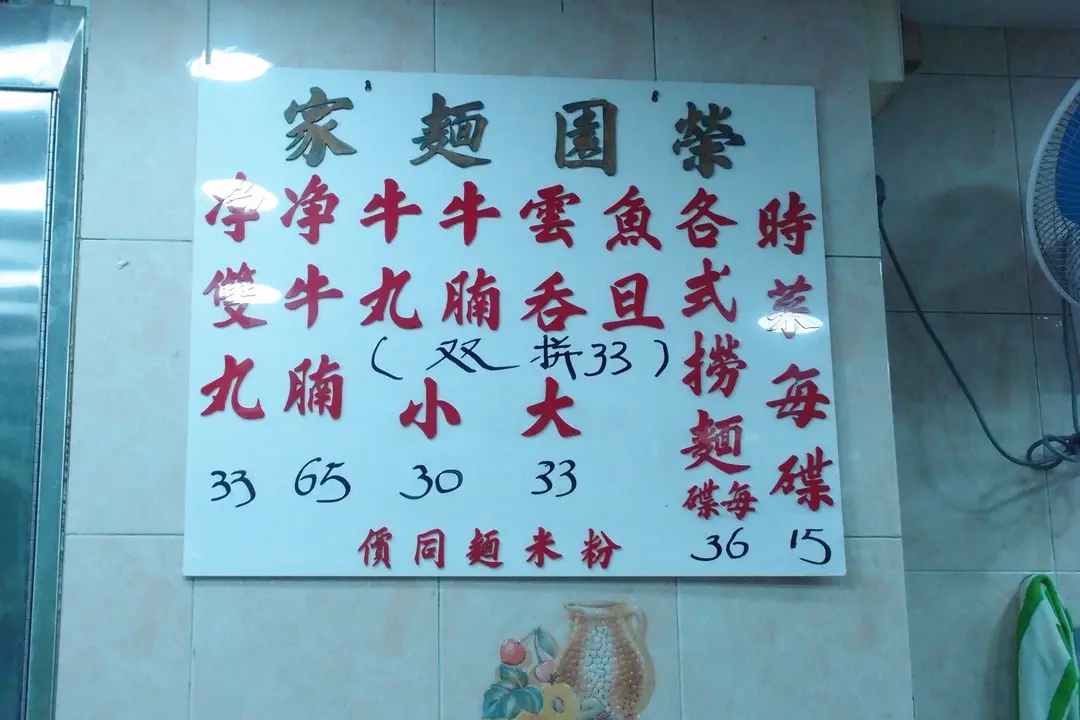 榮園麵家
時菜每碟
15
各式撈麵每碟
36
魚旦
雲吞
牛腩
牛丸
(双拼33)
大
33
小
30
净牛腩
65
净雙丸
33
粉米麵同價